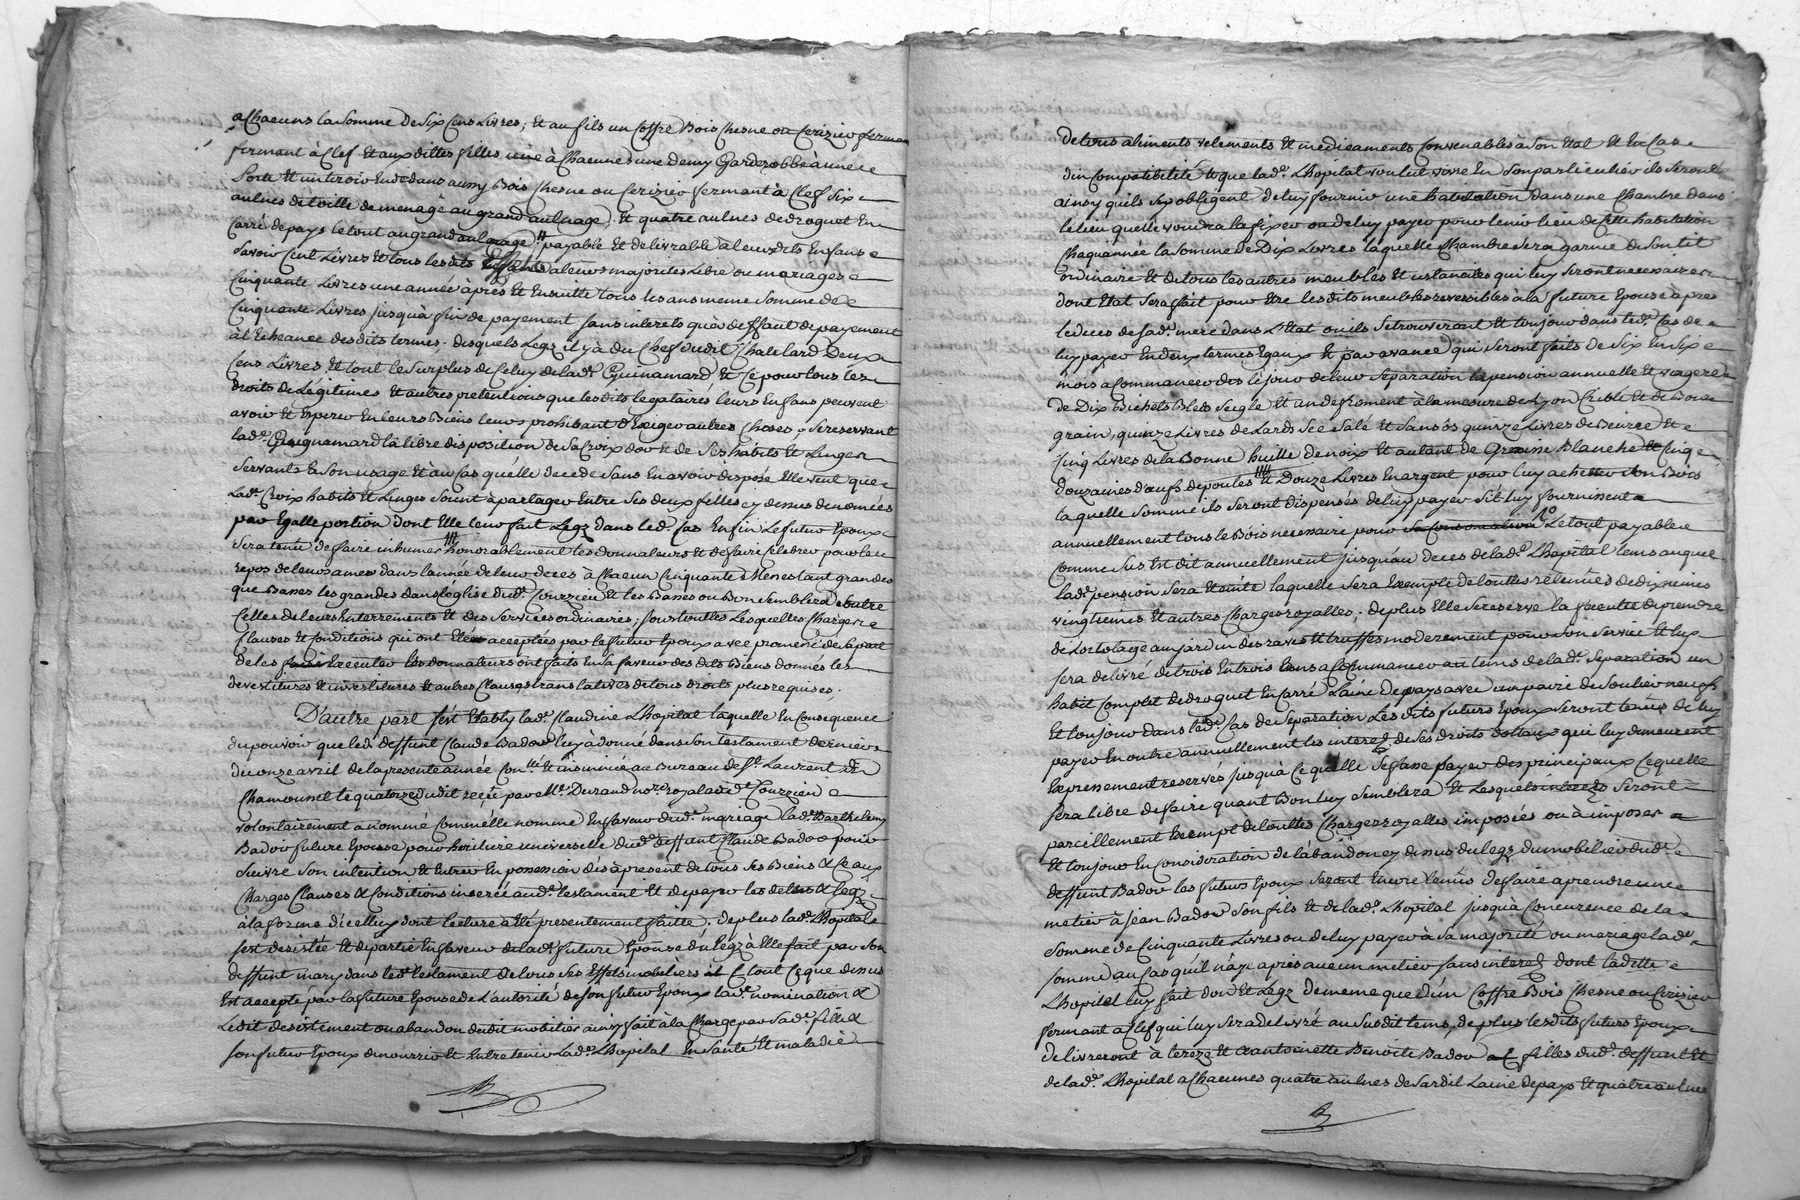 a Chacuns la somme de six Cens Livres; Et au fils un Coffre Bois Chesne ou Cerizier ferman
fermant à Clef Et aux dittes filles une à Chacunes une demy Garderobbe à une
Porte Et un tiroir En dedans aussy Bois Chesne ou Cerizier fermant à Clef Six
aulnes de toille de menage au grand aulnage, Et quatre aulnes de droguet En
Carré de pays le tout au grand aulnage payable Et delivrable a leursdits Enfans
Savoir Cent Livres Et tous lesdits Effets a leurs majorités Libre ou mariages
Cinquante Livres une année après Et Ensuitte tous les ans meme Somme de
Cinquante Livres jusqu'à fin de payement sans interets qu'à deffaut de payement
à l'Echeance desdits termes. desquels Legz il y à du Chef dudit Chatelard Deux
Cens Livres Et tout le surplus de Celuy de lad.e Guinamard Et Ce pour tous les
droits de Légitimes Et autres pretentions que lesdits legataires leurs Enfans peuvent
avoir Et Esperer En leurs Biens leurs prohibant d'Exiger autres Choses, se reservant
lad.e Guignamard la libre disposition de sa Croix d'or Et de Ses habits Et Linges
Servants En Son usage Et au Cas quelle decede Sans En avoir disposé Elle veut que
Lad.e Croix habits Et Linges Soint à partager Entre Ses deux filles cy dessus denomées
par Egalle portion dont Elle leur fait Legz dans led. Cas Enfin Le futur Epoux
Sera tenu de faire inhumer honorablement les donnateurs Et de faire Celebrer pour le
repos de leurs ames dans l'année de leur deces à Chacun Cinquante Messes tant grandes
que Basses les grandes dans l'eglise dud. Courzieu Et les Basses ou Bon Semblera Outre
Celles de leurs Enterrements Et des Services ordinaires; Sous toutes Lesquelles Charges
Clauses Et Conditions qui ont Eté acceptées par le futur Epoux avec promesse de sa part
de les Executer les donnateurs ont faits En sa faveur des dits Biens donnés les
devestitures Et investitures Et autres Clauses translatives de tous droits plus requises;
D'autre part s'est Etably lad.e Claudine Lhopital laquelle En Consequence
du pouvoir que led. deffunt Claude Bador luy à donné dans Son testament dernier
du onze avril de la presente année Con.llé Et insinuée au Bureau de St. Laurent de
Chamousset le quatorze dudit reçu par Me. Durand no.re royal aud. Courzieu
volontairement a nommé Comme Elle nomme En faveur dud. mariage lad.e Barthelemy
Bador future Epouse pour heritiere universelle dud. deffunt Claude Bador pour
Suivre Son intention Et Entrer En possession dès à present de tous Ses Biens Et Ce aux
Charges Clauses Et Conditions inserée aud. testament Et de payer les dettes Et Legz
à la forme d'icelluy dont lecture à Eté presentement faitte. de plus lad.e Lhopital
s'est desistée Et departie En faveur de lad. future Epouse du Legz à Elle fait par Son
deffunt mary dans led. testament de tous Ses Effets mobiliers Et tout Ce que dessus
Est accepté par la future Epouse de L'autorité de son futur Epoux lad.e nomination Et
Ledit desistement ou abandon dudit mobilier aussy fait à la Charge par Sad.e fille Et
son futur Epoux de nourrir Et Entretenir Lad.e Lhopital En Santé Et maladie
De tous aliments vetements Et medicaments Convenables à Son Etat Et En Cas
d'inCompatibilité Et que lad.e Lhopital voulut vivre En Son particulier ils Seront
ainsy quils S'y obligent de luy fournir une habitation dans une Chambre dans
le lieu quelle voudra la fixer ou de luy payer pour tenir lieu de Cette habitation
Chaqu'année la Somme de Dix Livres laquelle Chambre Sera garnie de Son lit
ordinaire Et de tous les autres meubles Et ustancilles qui luy Seront necessaires
dont Etat Sera fait pour Etre lesdits meubles reversibles à la future Epouse après
le deces de Sad. mere dans L'Etat ou ils Setrouveront Et toujour dans led. Cas de
luy payer En deux termes Egaux Et par avance qui Seront faits de Six En Six
mois a Commancer dès le jour de leur Separation la pension annuelle Et viagere
de Dix Bichets Bled Seigle Et un de froment à la mesure de Lyon Criblé Et de Bon
grain, quinze Livres de Lard Sec Salé Et Sans os quinze Livres de Beurre Et
Cinq Livres de la Bonne huille de noix Et autant de Graisse Blanche Cinq
douzaines d'œufs de poules Et Douze Livres En argent pour luy achetter Son Bois
laquelle Somme ils Seront dispensés de luy payer S'il luy fournissent
annuellement tous le Bois necessaire pour Sa Consomation Le tout payable
Comme Sus Est dit annuellement jusqu'au deces de lad.e Lhopital tems auquel
lad. pension Sera Eteinte laquelle Sera Exempte de touttes retenües de dixiemes
vingtiemes Et autres Charges royalles; de plus Elle Se reserve la faculté de prendre
de L'ortolage au jardin des raves Et truffes moderement pour Son Service Et luy
Sera delivré de trois En trois ans a Commancer au tems de lad.e Separation un
habit Complet de droguet En Carré Laine de pays avec un paire de Soulier neufs
Et toujour dans led. Cas de Separation Les dits futurs Epoux Seront tenus de luy
payer En outre annuellement les interets de Ses droits dottaux qui luy demeurent
Expressement reservés jusqu'à Ce quelle Se fasse payer des principaux Ce quelle
Sera libre de faire quant Bon luy Semblera Et Lesquels interets Seront
pareillement Exempt de touttes Charges royalles imposées ou à imposer
Et toujour En Consideration de l'abandon cy dessus du legz du mobilier dud.
deffunt Bador les futurs Epoux Seront Encore tenus de faire aprendre une
metier à jean Bador Son fils Et de lad.e Lhopital jusqu'à Concurence de la
Somme de Cinquante Livres ou de luy payer à Sa majorité ou mariage lad.e
Somme au Cas quil n'aye apris aucun metier sans interets dont la ditte
Lhopital luy fait don Et Legz De meme que d'un Coffre Bois Chesne ou Cerizier
fermant a Clef qui luy Sera delivré au Susdit tems, de plus lesdits futurs Epoux
delivreront à tereze Et antoinette Benoite Badou filles dud. deffunt Et
de lad.e Lhopital a Chacunes quatre aulnes de Sardil Laine de pays Et quatre aulnes